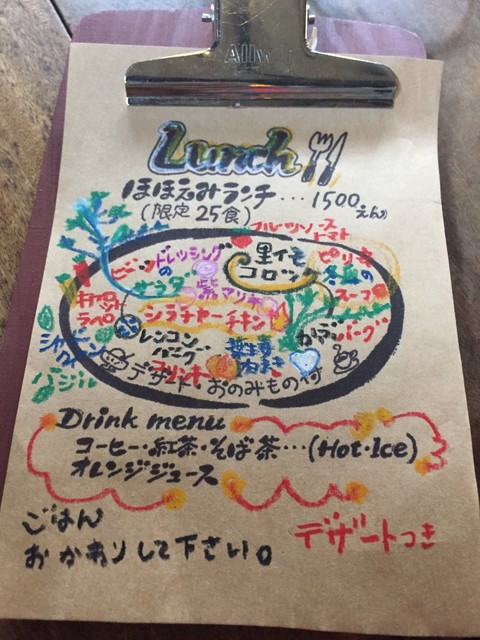 Lunch
ほほえみランチ…1500えん
(限定25食)
フルーツソース
トマト
ビーツドレッシング
の
サラダ
黒イモ
コロッケ
ピリ辛
冬瓜の
スープ
キャロット
ラペ
紫マリネ
シラチャーチキン
レンコン
バーグ
デザート おのみもの付
バジル
Drink menu
コーヒー・紅茶・そば茶…(Hot・Ice)
オレンジジュース
ごはん
おかわりして下さい。
デザートつき